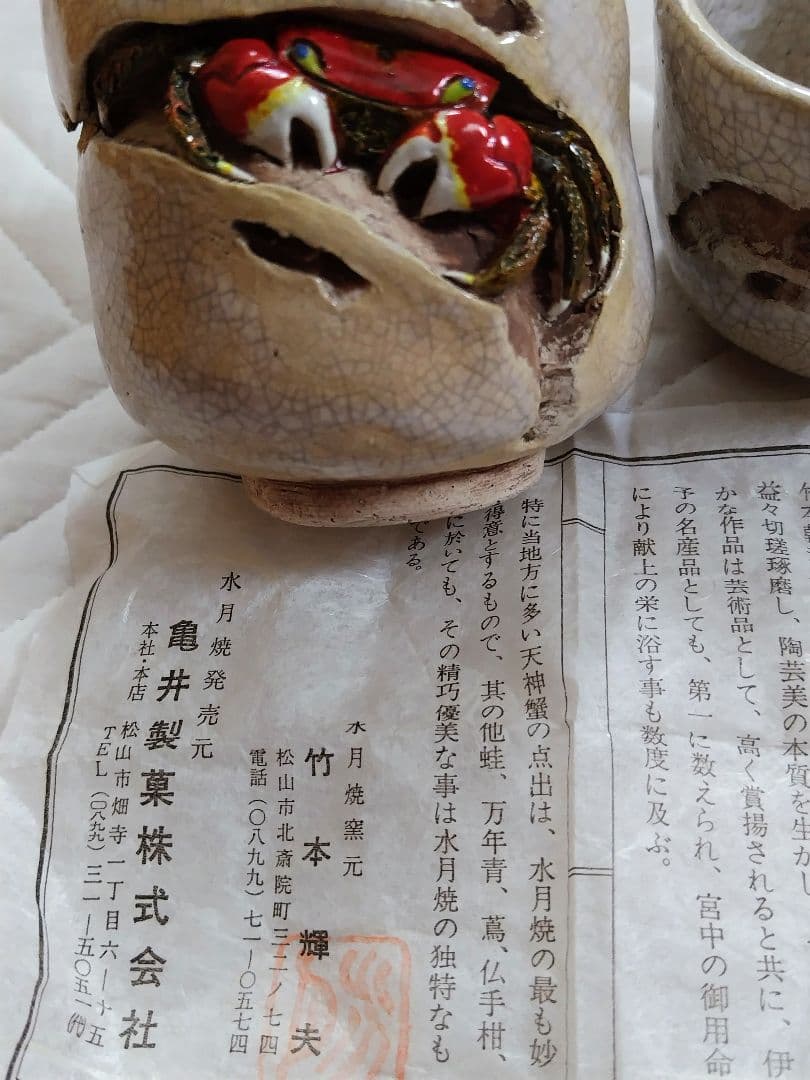 益々切瑳琢磨し、陶芸美の本質を生かし
かな作品は芸術品として、高く賞揚されると共に、伊
予の名産品としても、第一に数えられ、宮中の御用命
により献上の栄に浴す事も数度に及ぶ。
特に当地方に多い天神蟹の点出は、水月焼の最も妙
得意とするもので、其の他蛙、万年青、蔦、仏手柑、
に於いても、その精巧優美な事は水月焼の独特なも
である。
水月焼窯元
竹本輝夫
松山市北斎院町三二ノ七四
電話(〇八九九)七一―〇五七四
水月焼発売元
亀井製菓株式会社
本社・本店
松山市畑寺一丁目六―十五
TEL(〇八九九)三一―五〇五一㈹